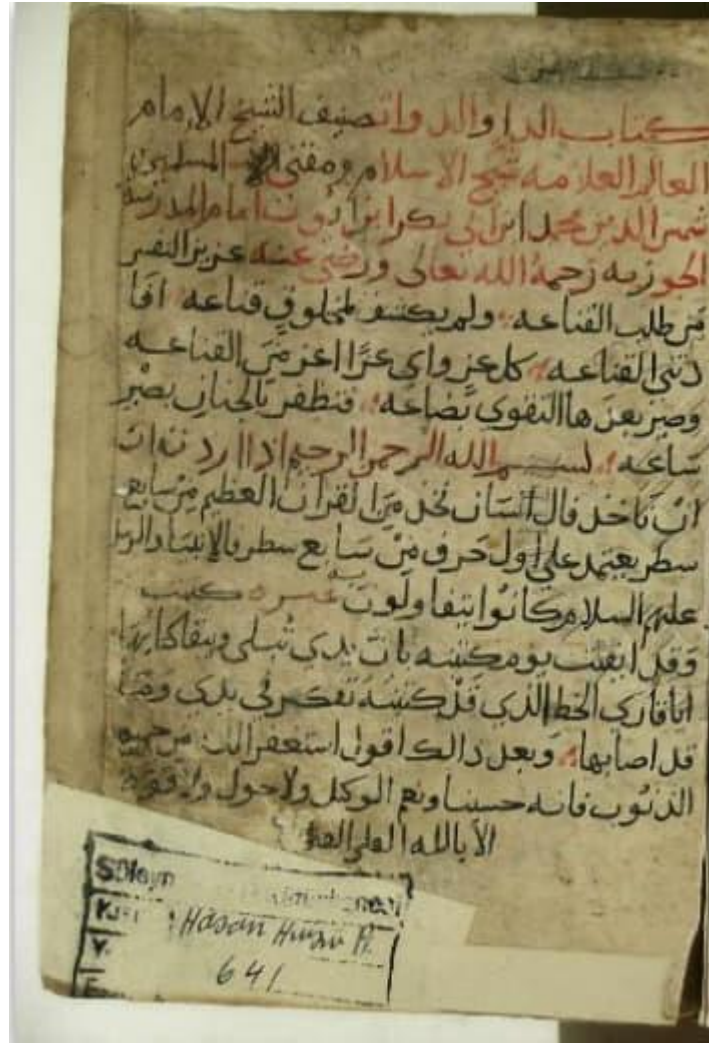 كتاب الدا والدوات صنيف الشيخ الامام
العالم العلامه شيخ الاسلام ومفتى المسلمين
شمس الدين محمد ابن ابي بكر ابن ايوب امام المدرسة
الجوزيه رحمة الله تعالى ورضى عنه عزيز النفس
من طلب القناعه ولم يكشف لمخلوق قناعه افا
دتني القناعه كل عز واي عزا اعز من القناعه
وصير بعزها التقوى بضاعه فتظفر بالجنان بصبر
ساعه بسم الله الرحمن الرحيم اذا اردت ان
ان تاخذ فال انسان تخذ من القران العظيم من سابع
سطر يعتمد على اول حرف من سابع سطر فالانبيا
عليهم السلام كانوا يتفاولون كتبت
وقد ايقنت يوم كتبته بان يدي تبلى ويبقا كتابها
ايا قاري الخط الذي قد كتبته تفكر في يدي وما
قد اصابها وبعد دالك اقول استغفر الله من جميع
الذنوب فانه حسبنا ونعم الوكل ولا حول ولا قوة
الا بالله العلي العظ
Süleyn
Hasan Hüsnü P.
641